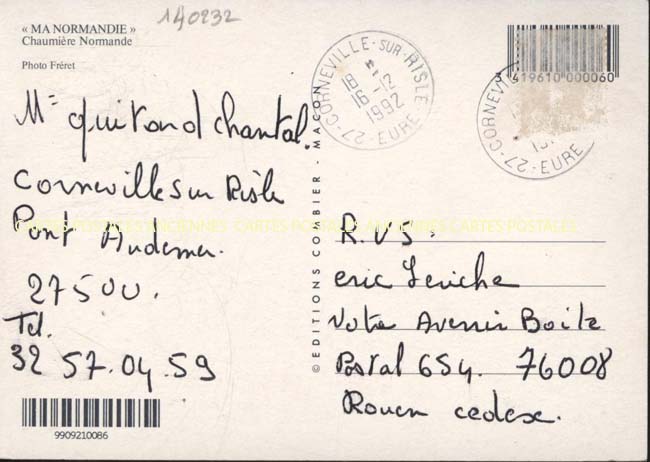 140232
« MA NORMANDIE »
Chaumière Normande
Photo Fréret
Mme Guitond Chantal.
Corneville Sur Risle
Pont Audemer.
27500.
Tel.
32 57.04.59
9909210086
© EDITIONS COMBIER - MACON
27-CORNEVILLE-SUR-RISLE
18 H
16-12
1992
EURE
3 419610 000060
27-CORNEVILLE
EURE
CARTES POSTALES ANCIENNES CARTES POSTALES ANCIENNES CARTES POSTALES
R.V.S.
eric Leriche
Votre Avenir Boite
Postal 654. 76008
Rouen cedex.